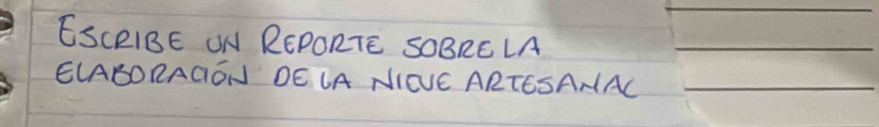 ESCRIBE UN REPORTE SOBRE LA
ELABORACIÓN DE LA NIEVE ARTESANAL